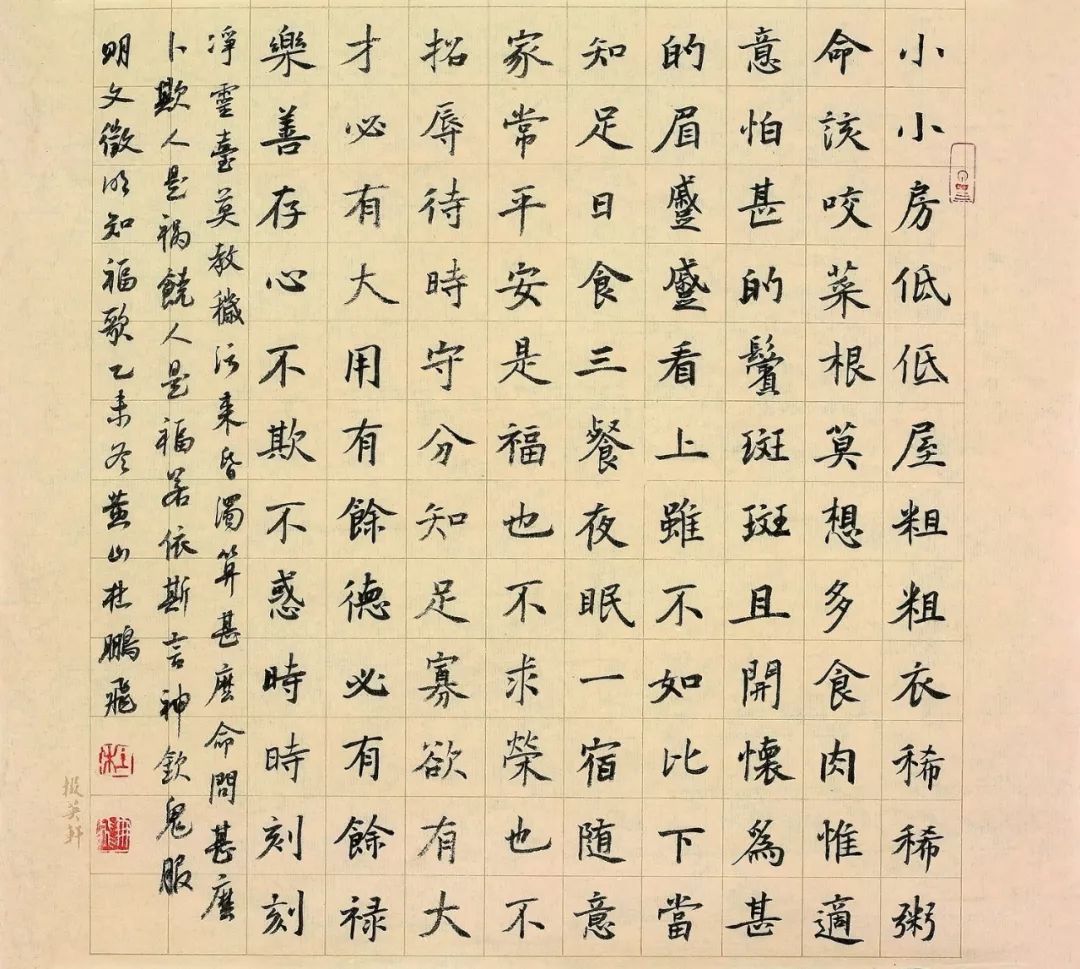 小小房低低屋粗粗衣稀稀粥
命該咬菜根莫想多食肉惟適
意怕甚的鬢斑斑且開懷為甚
的眉蹙蹙看上雖不如比下當
知足日食三餐夜眠一宿随意
家常平安是福也不求榮也不
招辱待時守分知足寡欲有大
才必有大用有餘德必有餘禄
樂善存心不欺不惑時時刻刻
淨靈臺莫教穢污来昏濁算甚麼命問甚麼
卜欺人是禍饒人是福若依斯言神欽鬼服
明文徵明知福歌乙未冬黄山杜鵬飛